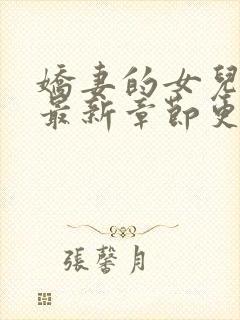 嬌妻的女兒
最新章節更
張馨月